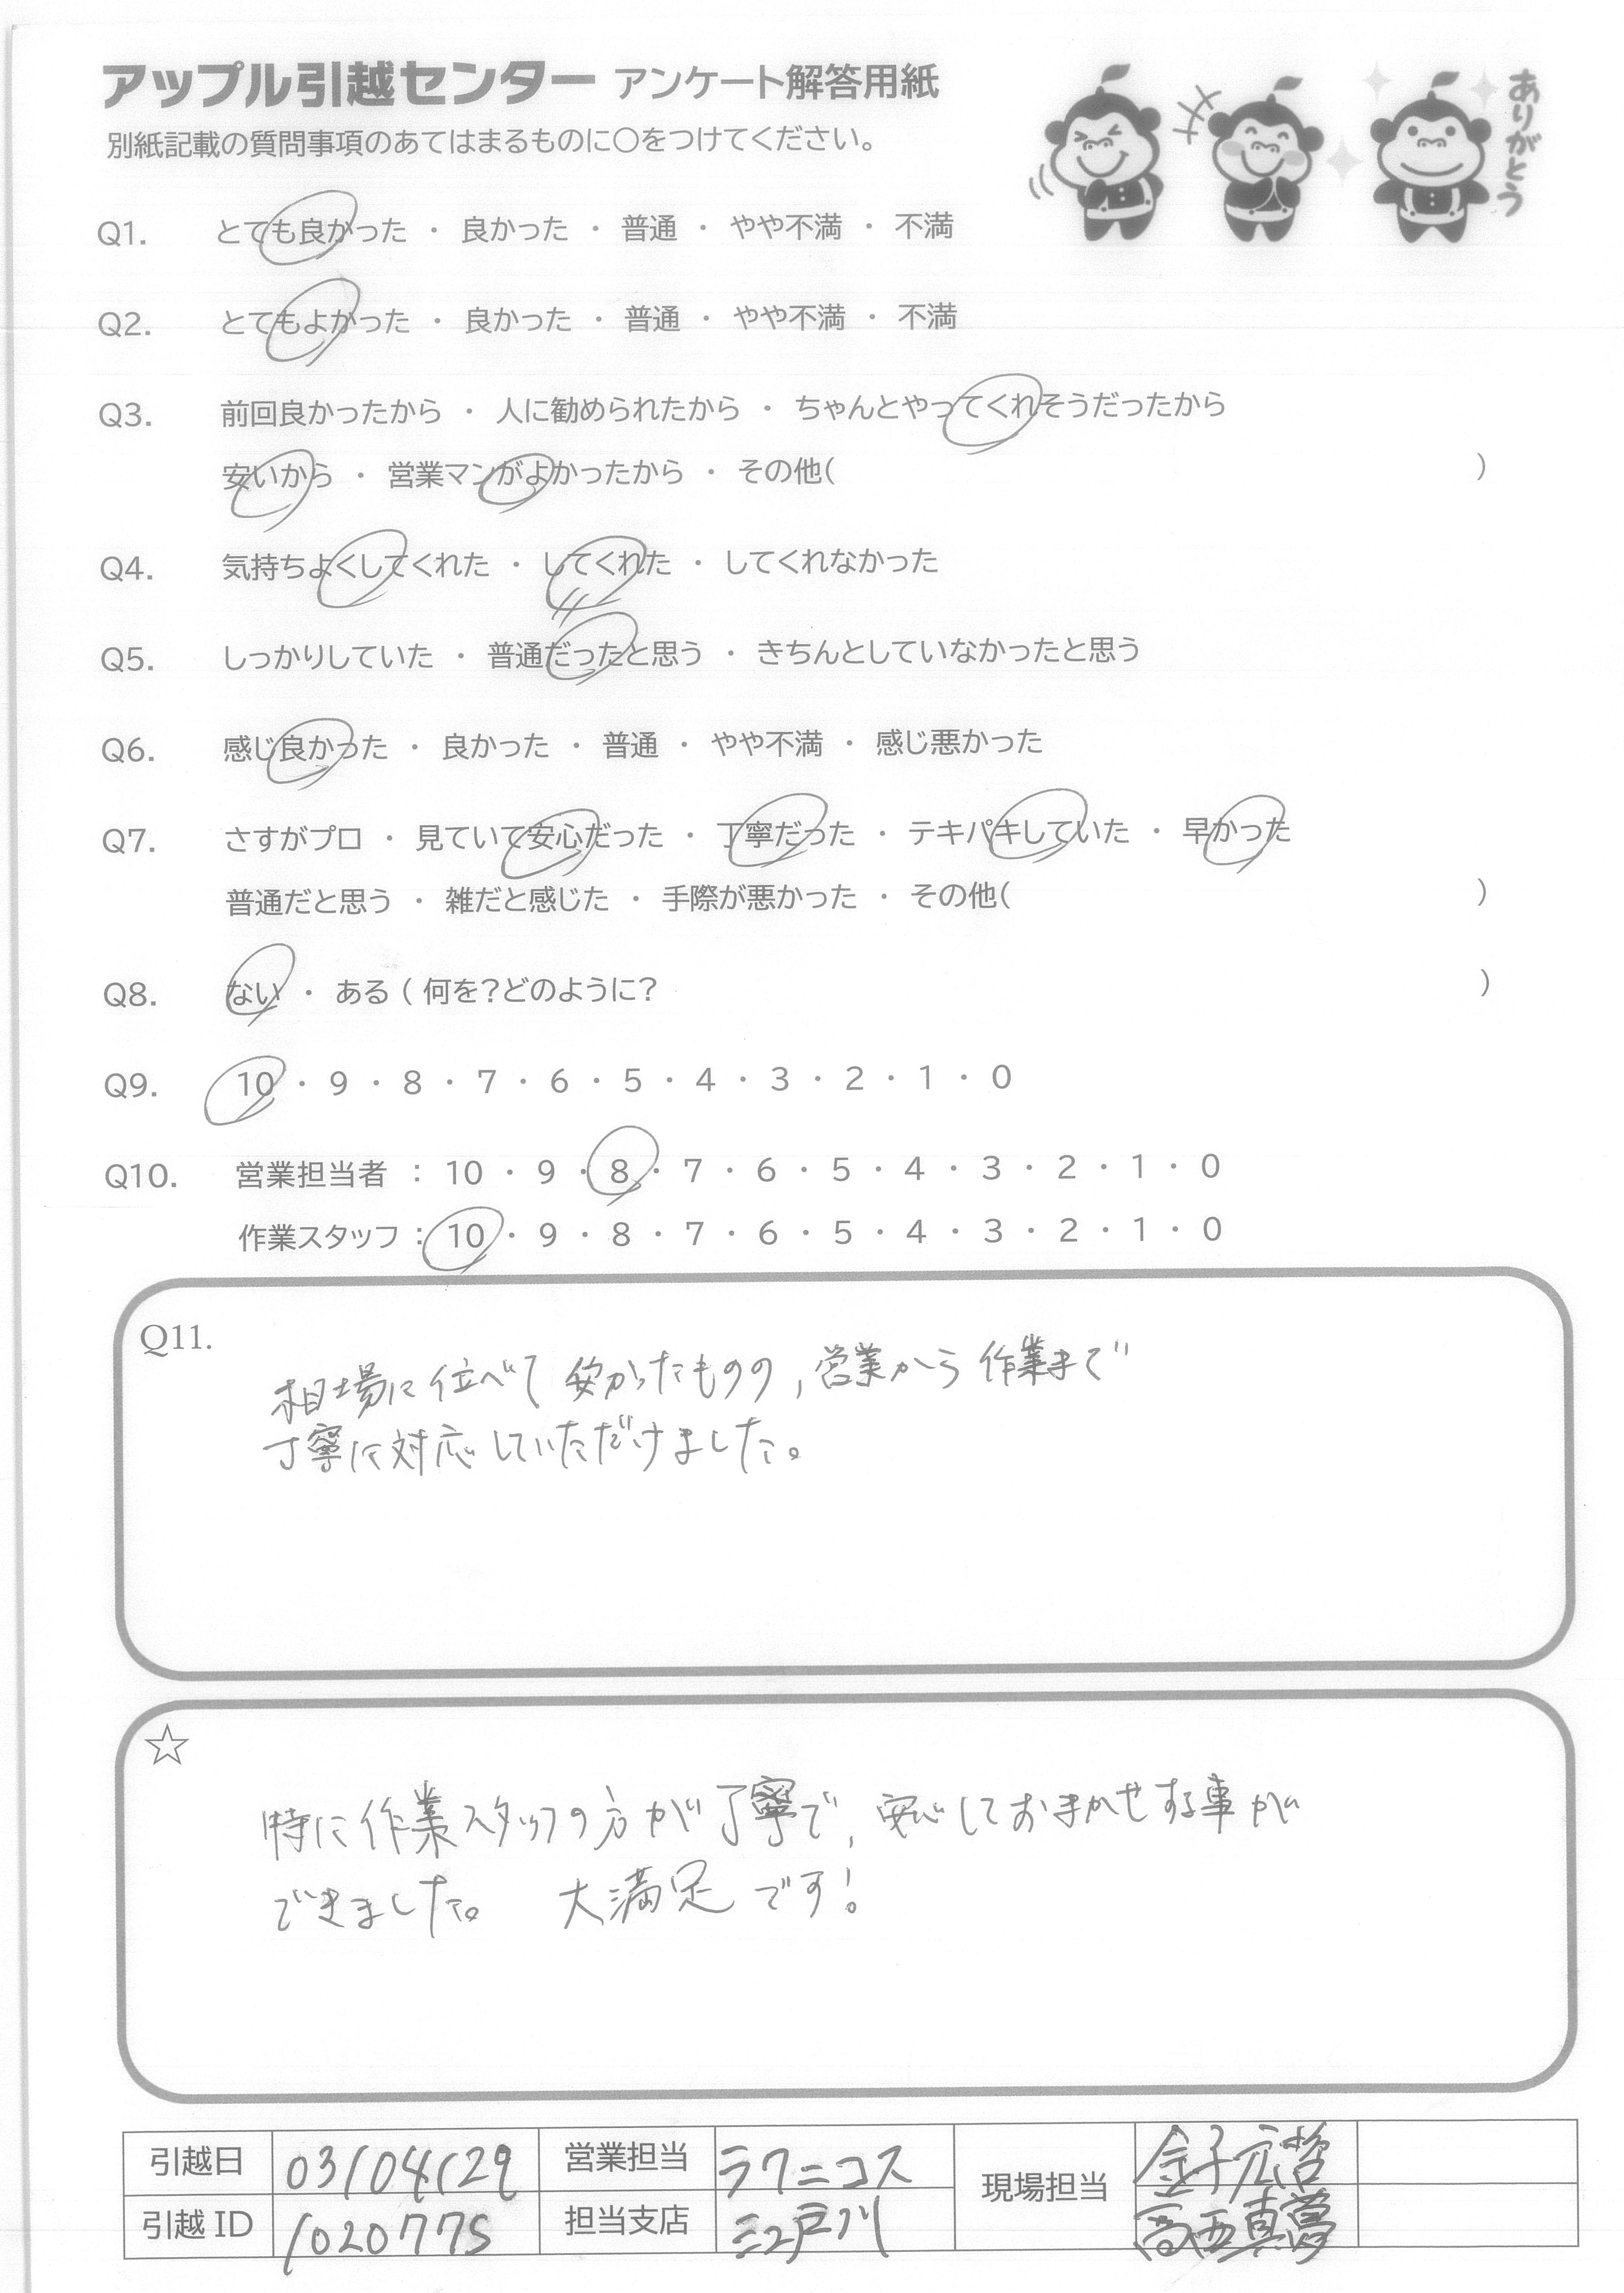 アップル引越センター アンケート解答用紙
別紙記載の質問事項のあてはまるものに〇をつけてください。
ありがとう
Q1. とても良かった ・ 良かった ・ 普通 ・ やや不満 ・ 不満
Q2. とてもよかった ・ 良かった ・ 普通 ・ やや不満 ・ 不満
Q3. 前回良かったから ・ 人に勧められたから ・ ちゃんとやってくれそうだったから
安いから ・ 営業マンがよかったから ・ その他( )
Q4. 気持ちよくしてくれた ・ してくれた ・ してくれなかった
Q5. しっかりしていた ・ 普通だったと思う ・ きちんとしていなかったと思う
Q6. 感じ良かった ・ 良かった ・ 普通 ・ やや不満 ・ 感じ悪かった
Q7. さすがプロ ・ 見ていて安心だった ・ 丁寧だった ・ テキパキしていた ・ 早かった
普通だと思う ・ 雑だと感じた ・ 手際が悪かった ・ その他( )
Q8. ない ・ ある ( 何を?どのように? )
Q9. 10 ・ 9 ・ 8 ・ 7 ・ 6 ・ 5 ・ 4 ・ 3 ・ 2 ・ 1 ・ 0
Q10. 営業担当者 : 10 ・ 9 ・ 8 ・ 7 ・ 6 ・ 5 ・ 4 ・ 3 ・ 2 ・ 1 ・ 0
作業スタッフ : 10 ・ 9 ・ 8 ・ 7 ・ 6 ・ 5 ・ 4 ・ 3 ・ 2 ・ 1 ・ 0
Q11.
相場に位べて安かったものの,営業から作業まで
丁寧に対応していただけました。
☆
特に作業スタッフの方が丁寧で,安心しておまかせする事が
できました。 大満足です!
引越日 03/04/29 営業担当 ラクニコス 現場担当 金子広哲
引越 ID 1020775 担当支店 江戸川 高西真夢